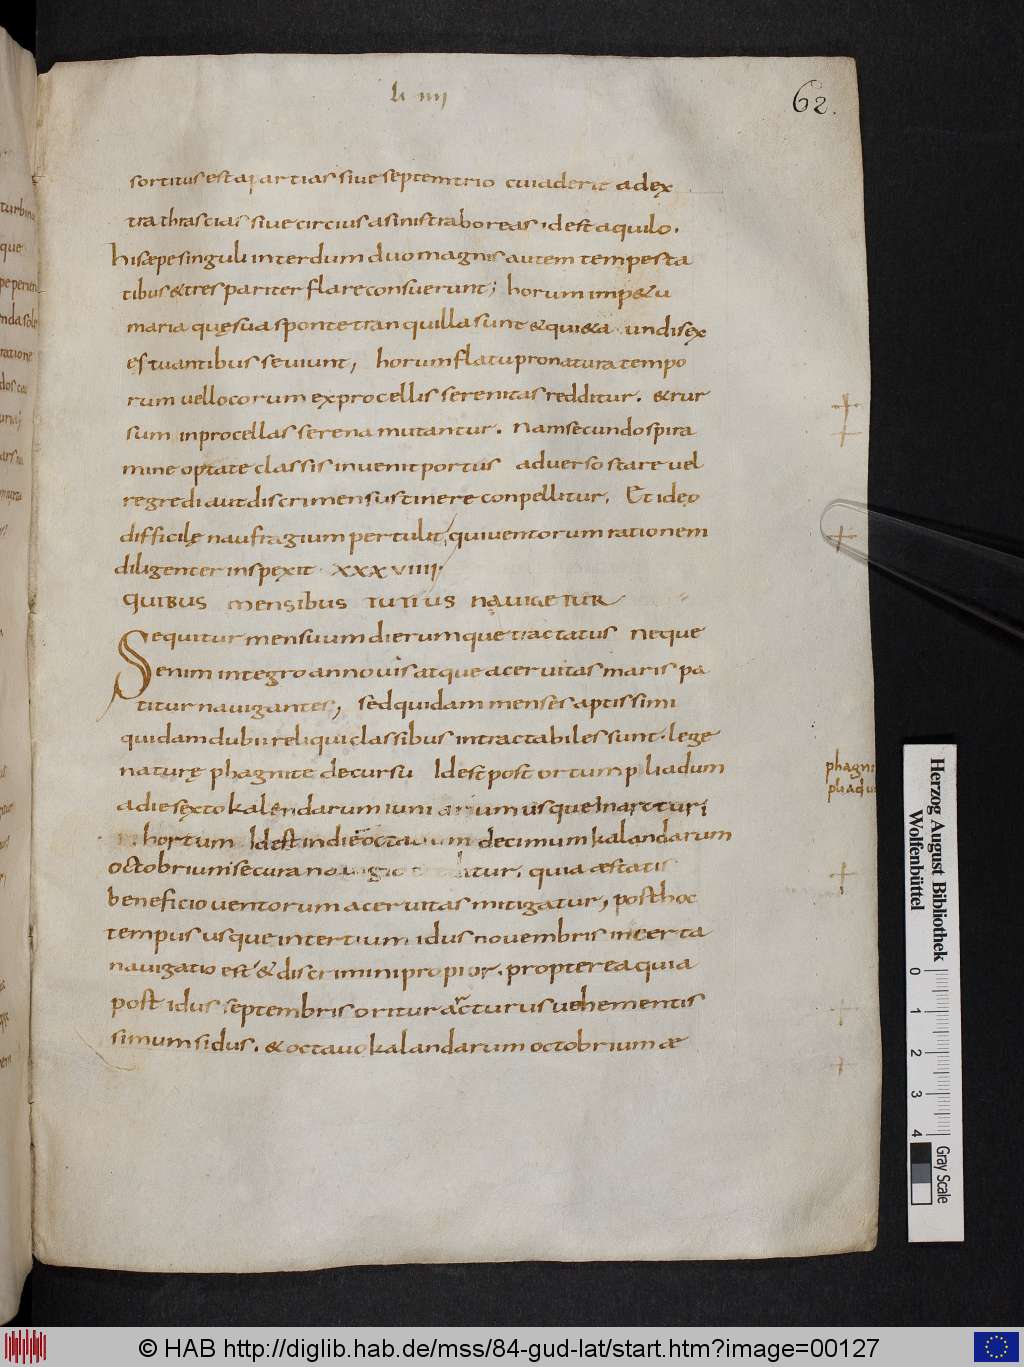 li iiii
62.
sortitus est aparctias sive septemtrio cui aderit a dex
tra thrascias sive circius a sinistra boreas · id est aquilo ·
hi sæpe singuli interdum duo magnis autem tempesta
tibus & tres pariter flare consuerunt ; horum imp&u
maria quę sua sponte tranquilla sunt & qui&a undis ęx
ęstuantibus seviunt , horum flatu pro natura tempo
rum vel locorum ex procellis serenitas redditur . & rur
sum in procellas serena mutantur . nam secundo spira
mine optate classis invenit portus adverso stare vel
regredi aut discrimen sustinere conpellitur . Et ideo
difficilę naufragium pertulit qui ventorum rationem
diligenter inspexit · xxxviiii ·
QUIBUS mensibus TUTIUS NAVIGETUR
Sequitur mensuum dierumque tractatus neque
enim integro anno vis atque acervitas maris pa
titur navigantes , sed quidam menses aptissimi
quidam dubii reliqui classibus intractabiles sunt · lege
naturę phagnite decursu Id est post ortum pliadum
phagni
pliadu
a die sęxto kalendarum iuniarium usque in arcturi
hortum Id est in die octavum decimum kalandarum
octobrium secura navigio quia æstatis
beneficio ventorum acervitas mitigatur , post hoc
tempus usque in tertium idus novembris incerta
navigatio est & discrimini propior . propterea quia
post idus septembris oritur arcturus vehementis
simum sidus . & octavo kalandarum octobrium æ
turbin
que
nda sole
ratione
Herzog August Bibliothek
Wolfenbüttel
0 1 2 3 4
Gray Scale
© HAB http://diglib.hab.de/mss/84-gud-lat/start.htm?image=00127